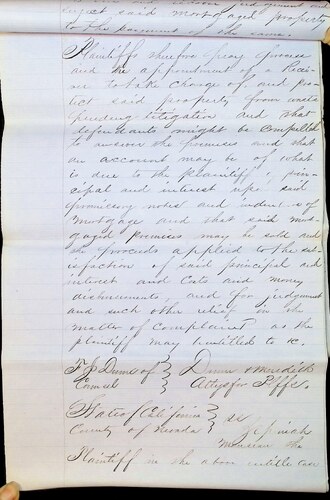 subject said mortgaged property
to the payment of the same.
Plaintiffs therefore pray process
and the appointment of a Recei-
ver to take charge of and pro-
tect said property from waste
pending litigation and that
defendants might be compelled
to answer the premises and that
an account may be of what
is due to the plaintiff, prin-
cipal and interest upon said
promissory notes and indent. of
mortgage and that said mort-
gaged premises may be sold and
the proceeds applied to the sat-
isfaction of said principal and
interest and Costs and money
disbursements, and for judgment
and such other relief in the
matter of Complaint as the
plaintiff may be entitled to &c.
F J Dunn of
Counsel
Dunn & Meredith
Attys for Plffs.
State of California
County of Nevada
ss
Monson the
Plaintiff in the above entitled case